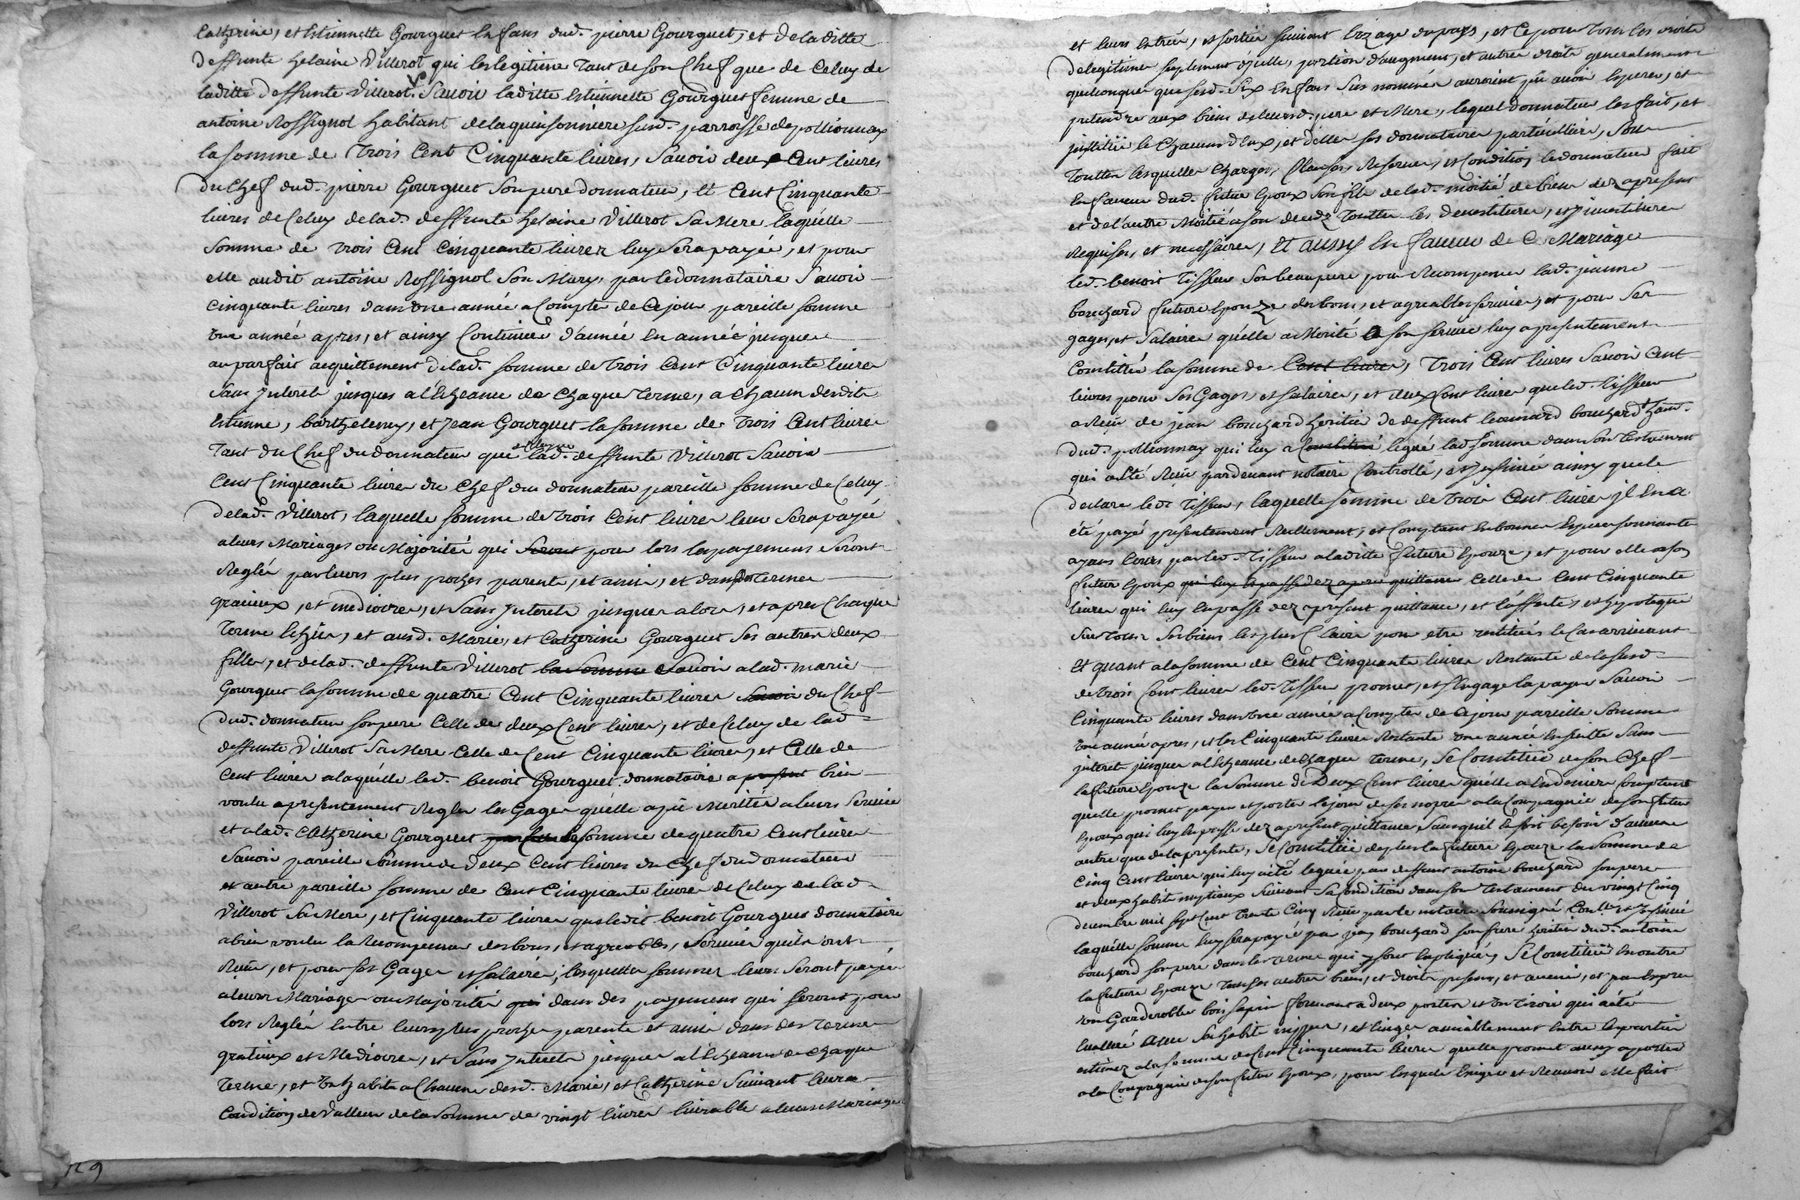 Catherine, et Estiennette Gourguet enfans dud. pierre Gourguet, et de laditte
deffunte helaine Villerot qui les legitime tant de son Chef que de Celuy de
laditte deffunte Villerot. Savoir laditte Estiennette Gourguet femme de
antoine Rossignol habitant de la parroisse de pollionnay
la somme de Trois Cent Cinquante livres, Savoir deux Cent livres
du Chef dud. pierre Gourguet son pere donnateur, Et Cent Cinquante
livres de Celuy de lad. deffunte helaine Villerot Sa Mere laquelle
Somme de trois Cent Cinquante livres luy Sera payée, et pour
elle audit antoine Rossignol Son Mary, par le donnataire Savoir
Cinquante livres dans une année a Compter de Ce jour pareille somme
une année apres, et ainsy Continuer d'année En année jusques
au parfait acquittement de lad. somme de trois Cent Cinquante livres
Sans jnterest jusques a l'Echeance de Chaque terme, a Chacun desdits
Estienne, barthelemy, et jean Gourguet la somme de trois Cent livres
Tant du Chef du donnateur que de lad. deffunte Villerot Savoir
Cent Cinquante livres du Chef du donnateur pareille somme de Celuy
de lad. Villerot, laquelle somme de trois Cent livres leur Sera payée
a leurs Mariages ou Majorité qui Seront pour lors les payemens Seront
Reglés par leurs plus proches parents, et amis, et dans des termes
gracieux, et mediocres, et Sans jnterests jusques alors, et apres Chaque
Terme Echeu, et ausd. Marie, et Catherine Gourguet Ses autres deux
filles, et de lad. deffunte Villerot la Somme Savoir a lad. marie
Gourguet la somme de quatre Cent Cinquante livres Savoir du Chef
dud. donnateur son pere Celle de deux Cent livres, et de Celuy de lad.
deffunte Villerot Sa Mere Celle de Cent Cinquante livres, et Celle de
Cent livres a laquelle led. benoit Gourguet donnataire a present bien
voulu apresentement Regler les Gages quelle a pû Meriter a leurs Service
et a lad. Catherine Gourguet la Somme de quatre Cent livres
Savoir pareille Somme de Deux Cent livres du Chef du donnateur
et autre pareille somme de Cent Cinquante livres de Celuy de lad.
Villerot Sa Mere, et Cinquante livres que ledit benoit Gourguet donnataire
a bien voulu la Recompenser des bons, et agreables, Services quils ont
Reçu, et pour Ses Gages et Salaires, lesquelles sommes leurs Seront payées
a leurs Mariages ou Majorité qui dans des payemens qui Seront pour
lors Reglés Entre leurs plus proches parents et amis dans des termes
gratieux et Mediocres, et Sans jnterests jusques a l'Echeance de Chaque
Terme, et un habit a Chacune desd. Marie, et Catherine Suivant leurs
Condition de Valleur de la Somme de vingt livres livrable a leurs Mariages
et leurs Entrées, et Sorties Suivant l'uzage du pays, et Ce pour tous les droits
de legitime suplement d'jcelle, portion d'augment, et autres droits generalement
quelconques que lesd. Six Enfans Sus nommés auroient pû avoir Esperer, et
pretendre aux biens de leursd. pere et Mere, lequel donnateur les fait, et
jnstitüe le Chacun d'Eux, et d'elles ses donnataires particuliers, Sous
Touttes lesquelles Charges, Clauses, Reserves, et Condition, le donnateur fait
En faveur dud. futur Epoux Son fils de lad. moitié de biens dez apresent
et de l'autre Moitié a son deceds Touttes les devestitures, et jnvestitures
Requises, et necessaires, Et aussy En faveur de Ce Mariage
led. benoit Tisseur Son beaupere pour Recompenser lad. jeanne
bouchard future Epouze des bons, et agreables services, et pour Ses
gages, et Salaires qu'elle a Merité a son service luy apresentement
Constitüé la somme de Cent livres, Trois Cent livres Savoir Cent
livres pour Ses Gages, et Salaires, et deux Cent livres que led. Tisseur
a Reçu de jean bouchard heritier de deffunt leonard bouchard hant.
dud. pollionnay qui luy a Constitué legué lad somme dans son Testament
qui a Eté Reçu pardevant notaire Controllé, et jnsinué ainsy que le
declare led. Tisseur, laquelle somme de Trois Cent livres jl En a
été payé presentement Reellement, et Comptant En bonnes Especes sonnantes
ayans Cours par led. Tisseur a ladite future Epouze, et pour elle a son
futur Epoux qui luy En passe dez apres quittance Celle de Cent Cinquante
livres qui luy En passe dez apresent quittance, et l'affecte, et hypoteque
Sur tous Ses biens les plus Clairs pour etre restituée le Cas arrivant
Et quant a la somme de Cent Cinquante livres Restante de lad Susd.
de trois Cent livres led. Tisseur promet, et S'Engage la payer Savoir
Cinquante livres dans une année a Compter de Ce jour pareille Somme
une année apres, et les Cinquante livres Restante une année En suitte Sans
jnterest jusques a l'Echeance de Chaque terme, Se Constitüe de son Chef
la future Epouze la Somme de Deux Cent livres qu'elle a En deniers Comptens
quelle promet payer et porter le jour de Ses nopces a la Compagnie de son futur
Epoux qui luy En passe dez apresent quittance Sans quil En Soit besoin d'aucune
autre que de la presente, Se Constitüe de plus la future Epouze la Somme de
Cinq Cent livres qui luy a été leguée, par deffunt antoine bouchard son pere
et deux habit nuptiaux Suivant Sa Condition dans son Testament du vingt Cinq
decembre mil Sept Cent Trente Cinq Reçu par le notaire Soussigné Conllé et Jnsinué
laquelle Somme luy Sera payée par jean bouchard son frere heritier dud. antoine
bouchard son pere dans les termes qui y sont Expliqués, Se Constitüe En outre
la future Epouze Tous Ses autres biens, et droits presens, et avenir, et par Exprès
un Garderobbe bois Sapin fermant a deux portes et un tiroir qui a été
Evalüé avec Ses habits, et linges amiablement Entre les parties
estimez a la somme de Cent Cinquante livres quelle promet aussy aporter
a la Compagnie de son futur Epoux, pour lesquels Exiger et Recevoir elle fait